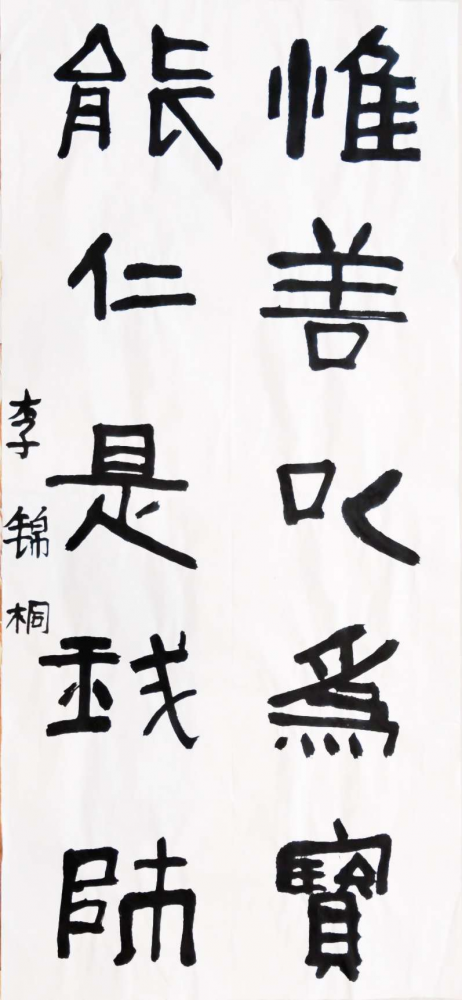 惟善以為寶
能仁是我師
李锦桐